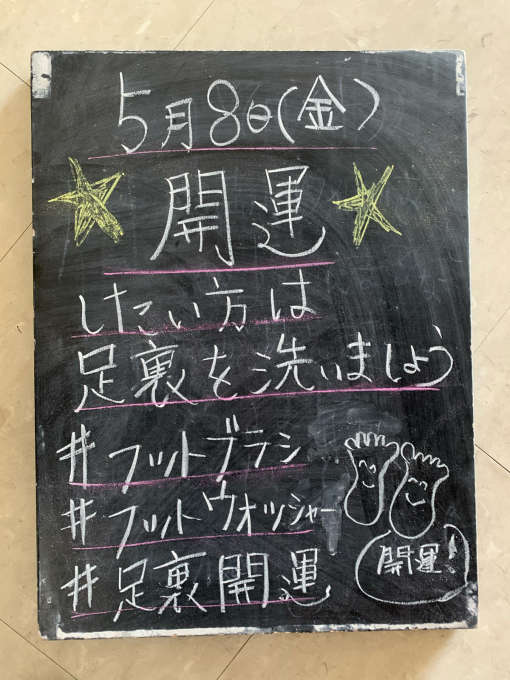 5月8日(金)
開運
したい方は
足裏を洗いましょう
#フットブラシ
#フットウォッシャー
#足裏開運
開運!